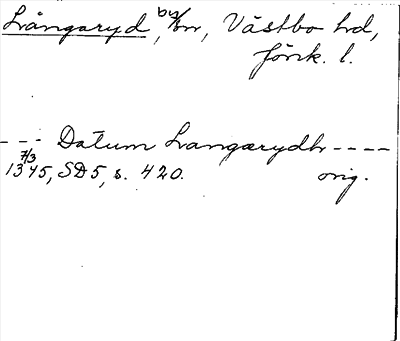 Långaryd, by/sn, Västbo hd,
Jönk. l.
--- Datum Langærydh ----
7/3 1345, SD5, s. 420. orig.